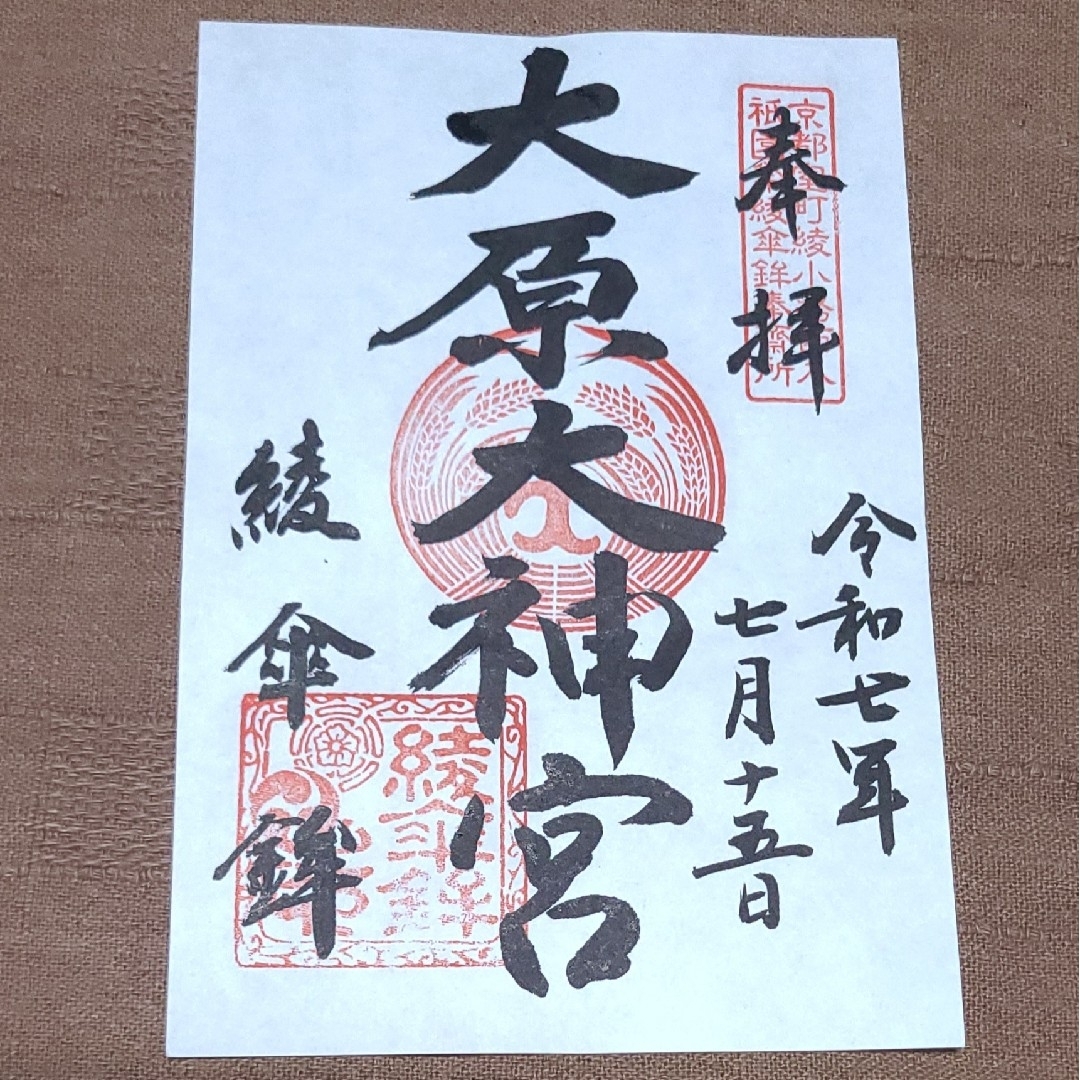 奉拝
京都室町綾小路
祇園
綾傘鉾
所
令和七年
七月十五日
大原大神宮
綾傘鉾
綾傘鉾